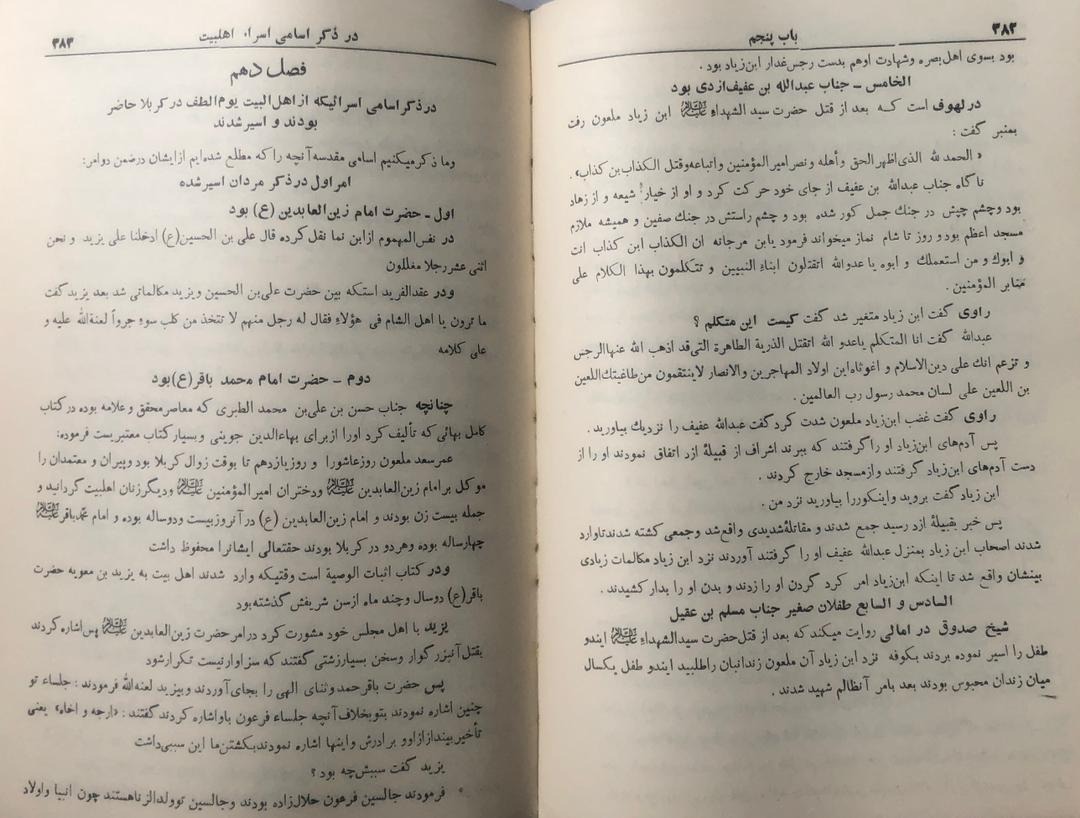 ۳۸۲
باب پنجم
بود بسوی اهل‌بصره وشهادت اوهم بدست رجس‌غدار ابن‌زیاد بود .
الخامس ـ جناب عبدالله بن عفیف‌ازدی بود
درلهوف است که بعد از قتل حضرت سید الشهداءِ علیه‌السلام ابن زیاد ملعون رفت
بمنبر گفت :
« الحمد لله الذی‌اظهر الحق و أهله و نصر امیر المؤمنین و اتباعه‌وقتل الکذاب‌بن کذاب» .
ناگاه جناب عبدالله بن عفیف از جای خود حرکت کرد و او از خیار شیعه و از زهاد
بود وچشم چپش در جنك جمل کور شده بود و چشم راستش در جنك صفین و همیشه ملازم
مسجد اعظم بود و روز تا شام نماز میخواند فرمود یابن مرجانه ان الکذاب ابن کذاب انت
و ابوك و من استعملك و ابوه یا عدوالله اتقتلون ابناءِ النبیین و تتکلمون بهذا الکلام علی
منابر المؤمنین .
راوی گفت ابن زیاد متغیر شد گفت کیست این متکلم ؟
عبدالله گفت انا المتکلم یاعدو الله اتقتل الذریة الطاهرة التی‌قد اذهب الله عنهاالرجس
و تزعم انك علی دین‌الاسلام و اغوثاه‌این اولاد المهاجرین والانصار لاینتقمون من‌طاغیتك‌اللعین
بن اللعین علی لسان محمد رسول رب العالمین .
راوی گفت غضب ابن‌زیاد ملعون شدت کرد گفت عبدالله عفیف را نزدیك بیاورید .
پس آدم‌های ابن‌زیاد او را گرفتند که ببرند اشراف از قبیلهٔ ازد اتفاق نمودند او را از
دست آدم‌های ابن‌زیاد گرفتند وازمسجد خارج کردند .
ابن زیاد گفت بروید واینکوررا بیاورید نزد من .
پس خبر بقبیلهٔ ازد رسید جمع شدند و مقاتلهٔ‌شدیدی واقع‌شد وجمعی کشته شدندتاوارد
شدند اصحاب ابن زیاد بمنزل عبدالله عفیف او را گرفتند آوردند نزد ابن زیاد مکالمات زیادی
بینشان واقع شد تا اینکه ابن‌زیاد امر کرد گردن او را زدند و بدن او را بدار کشیدند .
السادس و السابع طفلان صغیر جناب مسلم بن عقیل
شیخ صدوق در امالی روایت میکند که بعد از قتل‌حضرت سیدالشهداءِ علیه‌السلام ایندو
طفل را اسیر نموده بردند بکوفه نزد ابن زیاد آن ملعون زندانبان راطلبید ایندو طفل یکسال
میان زندان محبوس بودند بعد بامر آنظالم شهید شدند .
در ذکر اسامی اسراء اهلبیت
۳۸۳
فصل دهم
در ذکر اسامی اسرائیکه از اهل‌البیت یوم‌الطف در کربلا حاضر
بودند و اسیرشدند
وما ذکرمیکنیم اسامی مقدسه آنچه را که مطلع شده‌ایم ازایشان درضمن دوامر:
امر اول در ذکر مردان اسیرشده
اول ـ حضرت امام زین‌العابدین (ع) بود
در نفس‌المهموم ازابن نما نقل‌کرده قال علی بن الحسین(ع) ادخلنا علی یزید و نحن
اثنی عشر رجلا مغللون
ودر عقدالفرید استکه بین حضرت علی‌بن الحسین ویزید مکالماتی شد بعد یزید گفت
ما ترون یا اهل الشام فی هؤلاءِ فقال له رجل منهم لا تتخذ من کلب سوءِ جرواً لعنةالله علیه و
علی کلامه
دوم ـ حضرت امام محمد باقر(ع)بود
چنانچه جناب حسن بن علی‌بن محمد الطبری که معاصرمحقق و علامه بوده درکتاب
کامل بهائی که تألیف کرد اورا ازبرای بهاءالدین جوینی وبسیارکتاب معتبریست فرموده:
عمرسعد ملعون روزعاشورا و روزیازدهم تا بوقت زوال کربلا بود وپیران و معتمدان را
موکل برامام زین‌العابدین علیه‌السلام ودختران امیر المؤمنین علیه‌السلام ودیگرزنان اهلبیت گردانید و
جمله بیست زن بودند و امام زین‌العابدین (ع) درآنروزبیست ودوساله بوده و امام محمدباقر علیه‌السلام
چهارساله بوده وهردو در کربلا بودند حقتعالی ایشانرا محفوظ داشت
ودر کتاب اثبات الوصیة است وقتیکه وارد شدند اهل بیت به یزید بن معویه حضرت
باقر(ع) دوسال وچند ماه ازسن شریفش گذشته‌بود
یزید با اهل مجلس خود مشورت کرد درامر حضرت زین‌العابدین علیه‌السلام پس‌اشاره کردند
بقتل‌آنبزرگوار وسخن بسیارزشتی گفتند که سزاوارنیست تکرارشود
پس حضرت باقرحمد وثنای الهی را بجای‌آوردند وبیزید لعنه‌الله فرمودند : جلساء تو
چنین اشاره نمودند بتوبخلاف‌آنچه جلساء فرعون باواشاره کردند گفتند : «ارجه و اخاه» یعنی
تأخیربیندازازاوو برادرش واینها اشاره نمودندبکشتن‌ما این سببی‌داشت
یزید گفت سببش‌چه بود ؟
فرمودند جالسین فرعون حلال‌زاده بودند وجالسین توولدالزناهستند چون انبیا واولاد